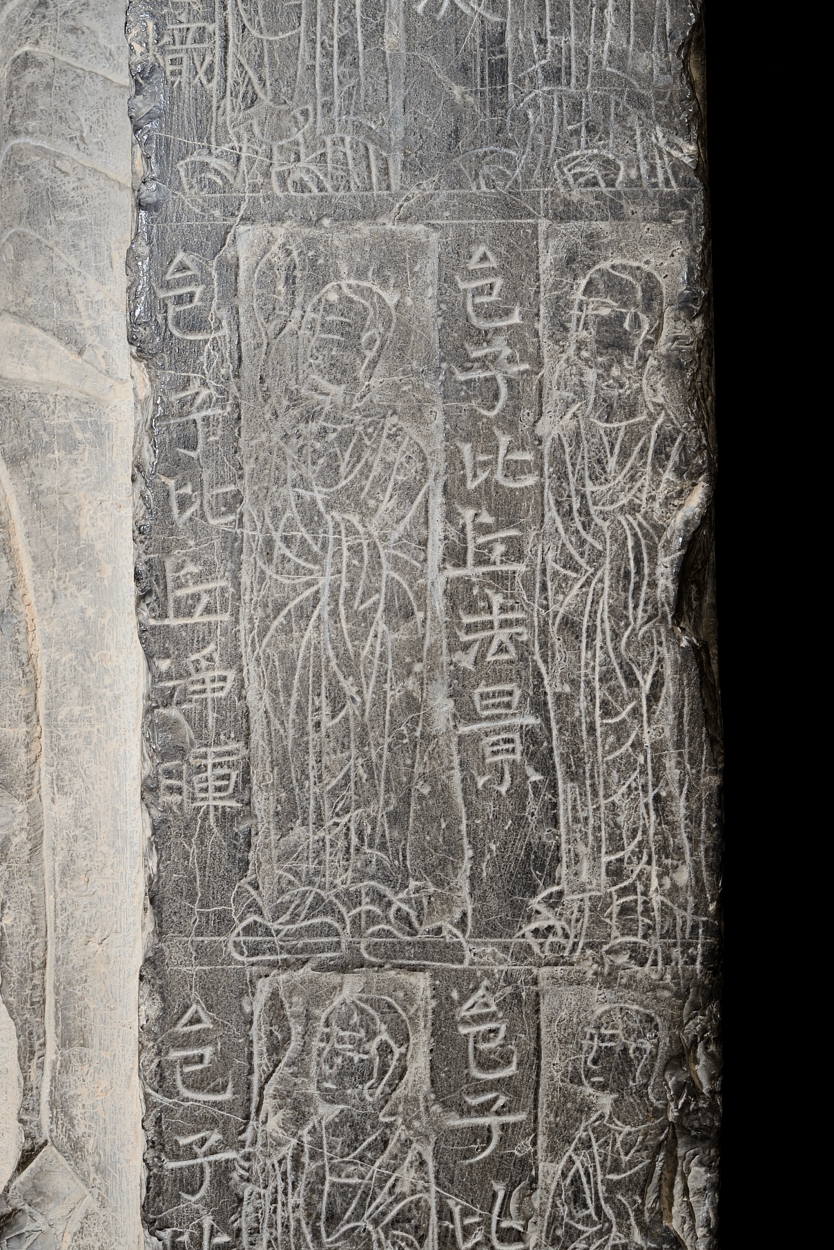 邑子比丘法景
邑子比丘淨暉
邑子比
邑子